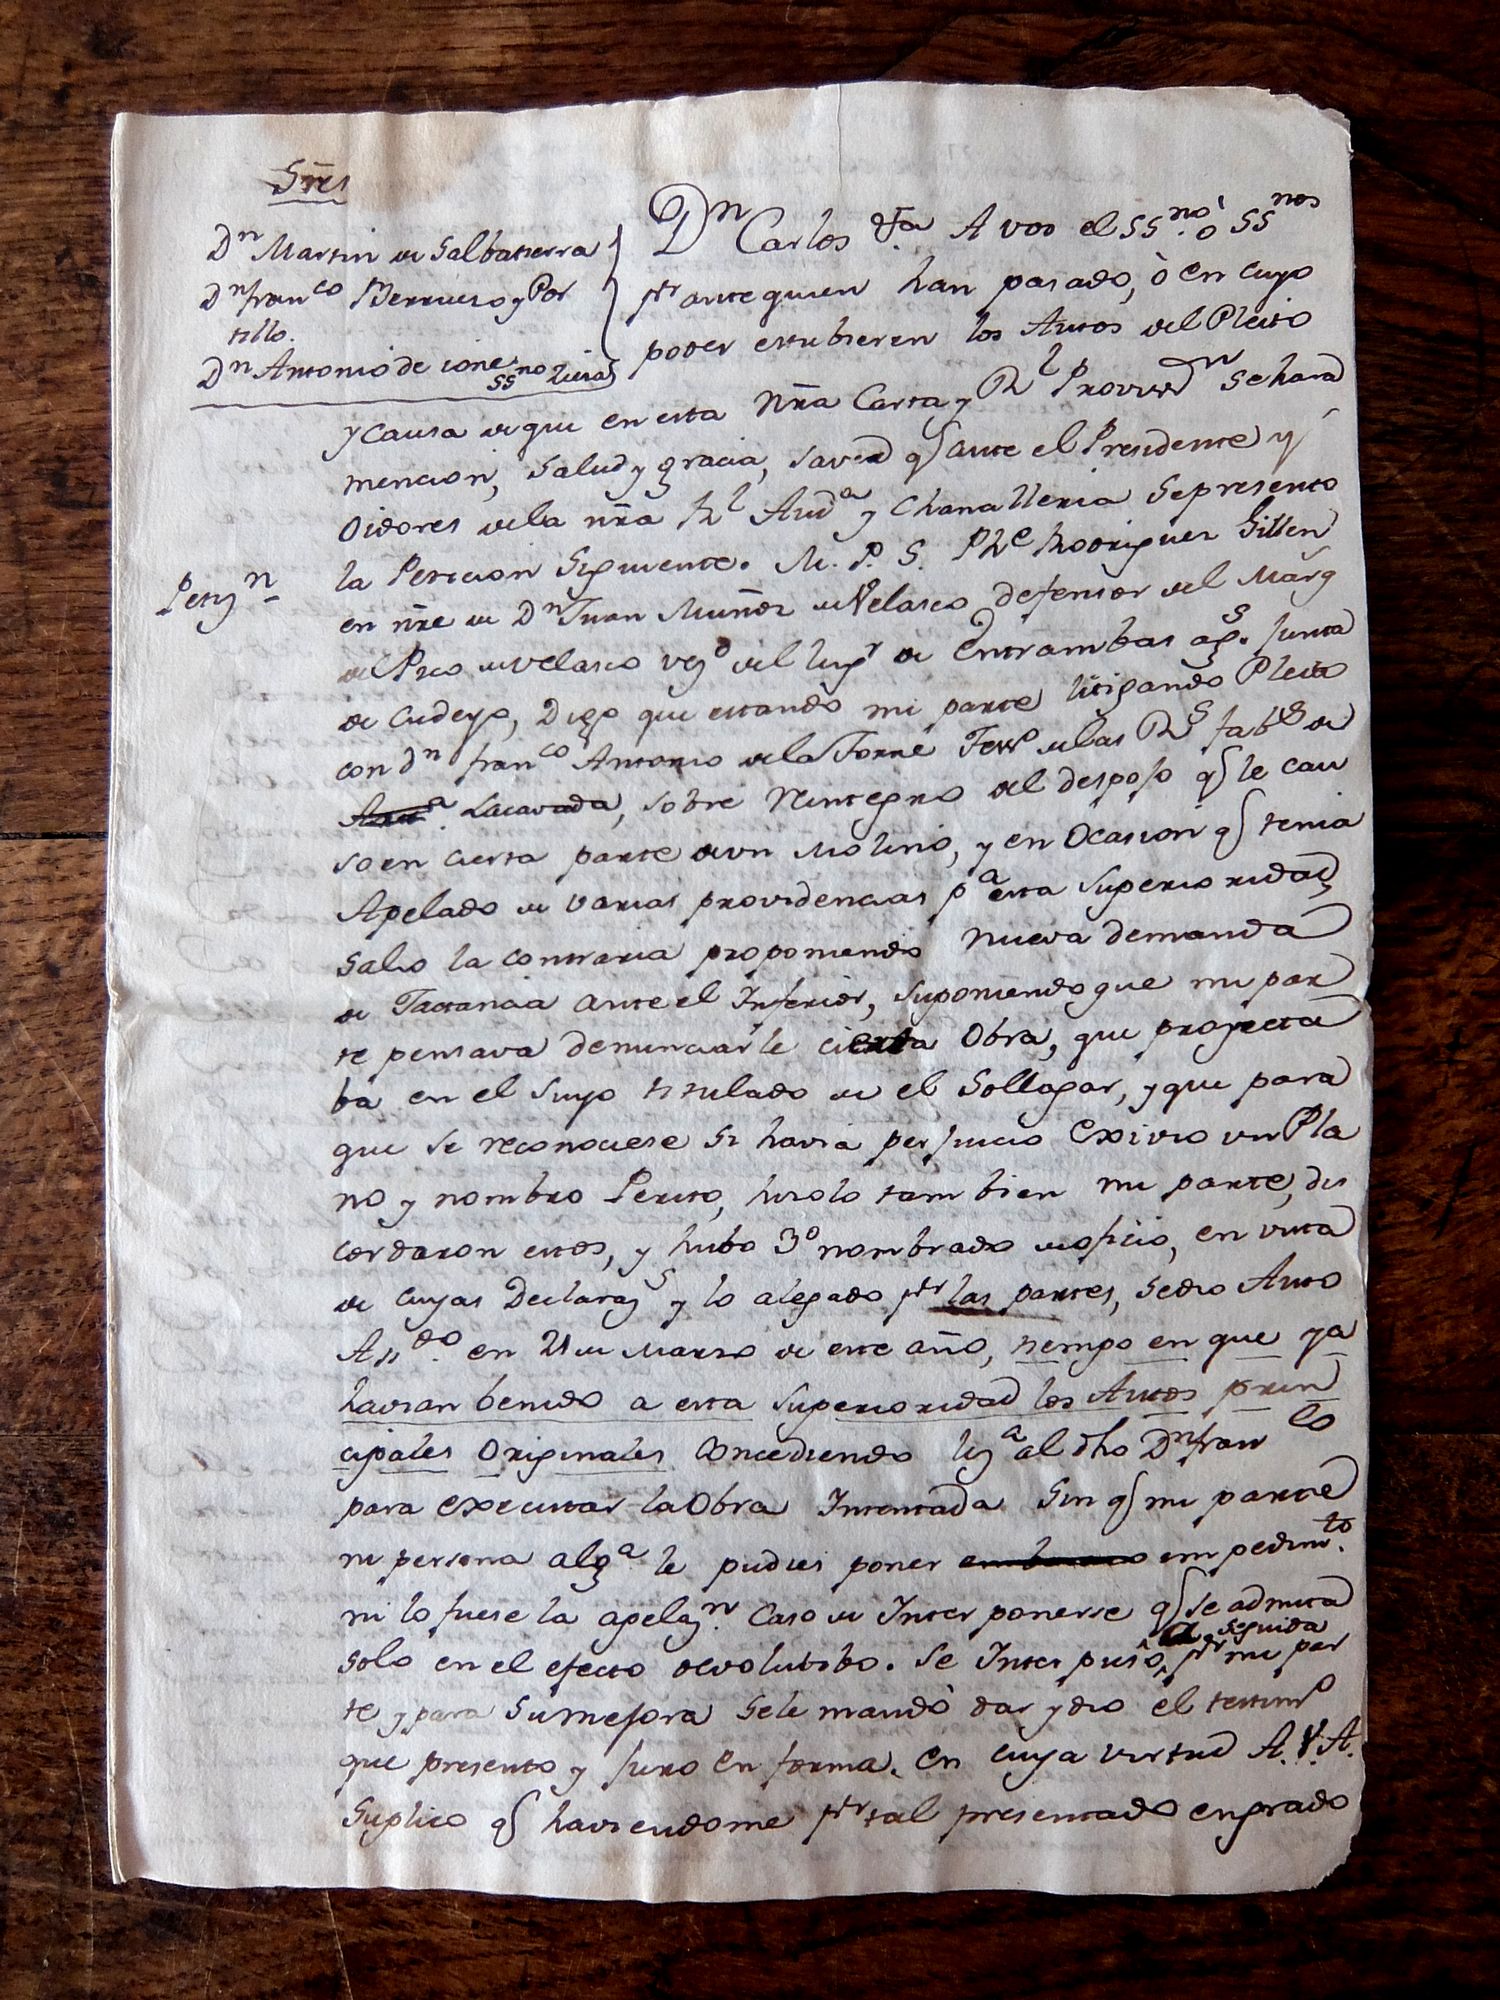 Sres
Dn Martin de Salbatierra
Dn franco Berrueso y Por
tillo.
Dn Antonio de
ssno
Dn Carlos &a A vos el SSno. ò SSnos
pr ante quien han pasado, ò en cuyo
poder estubieren los Autos del Pleito
y causa de que en esta Nra Carta y Rl Provisn se hara
mencion, Salud y gracia, saved q ante el Presidente y
Oidores de la nra Rl Auda y Chanzilleria se presento
la Peticion Siguiente. M. P. S. Phe Rodriguez Gillen
Petizn
en nre de Dn Juan Muñoz de Velasco defensor del Marq
de Velasco vezo del lugr de Entrambas ags. Junta
de Cudeyo, Digo que estando mi parte litigando Pleito
con dn franco Antonio de la Torre Tesro de las Rs fabs de
la Cavada, sobre reintegro del despojo q le cau
so en cierta parte de un Molino, y en Ocasion q tenia
Apelado de varias providencias pa esta Superioridad
salio la contraria proponiendo nueva demanda
de Jactancia ante el Inferior, suponiendo que mi par
te pensava denunciarle cierta Obra, que proyecta
ba en el suyo titulado de el Sollagar, y que para
que se reconociese si havia perjuicio exivio un Pla
no y nombro Perito, hizolo tambien mi parte, dis
cordaron estos, y hubo 3o nombrado de oficio, en vista
de cuyas Declarazs y lo alegado pr las partes, se dio Auto
en 21 de Marzo de este año, tiempo en que ya
havian benido a esta superioridad los Autos prin
cipales Originales Concediendo liza al dho Dn franco
para executar la Obra Intentada Sin q mi parte
ni persona alga le pudies poner embarazo impedimto.
ni lo fuese la apelazn. Caso de Interponerse q se admita
seguida
solo en el efecto devolutibo. Se Interpuso, pr mi par
te y para su mejora se le mandò dar y dio el testimo
que presento y juro en forma. En cuya virtud A. V. A.
Suplico q haviendome pr tal presentado en grado